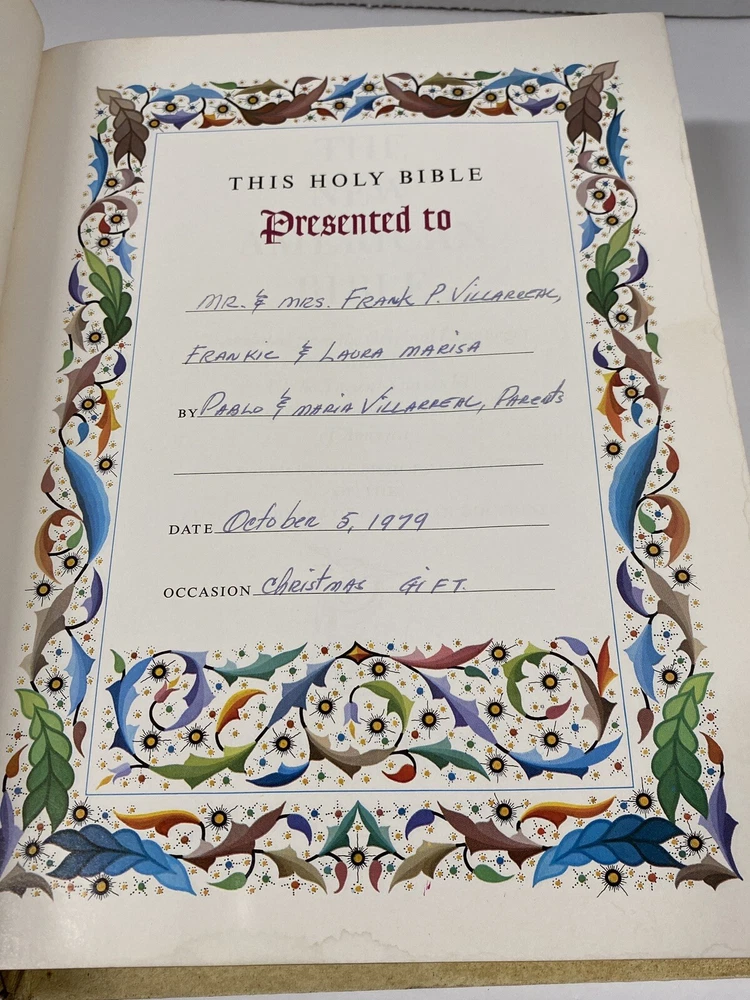 THIS HOLY BIBLE
Presented to
MR. & MRS. FRANK P. VILLARREAL,
FRANKIE & LAURA MARISA
BY PABLO & MARIA VILLARREAL, PARENTS
DATE October 5, 1979
OCCASION Christmas GIFT.